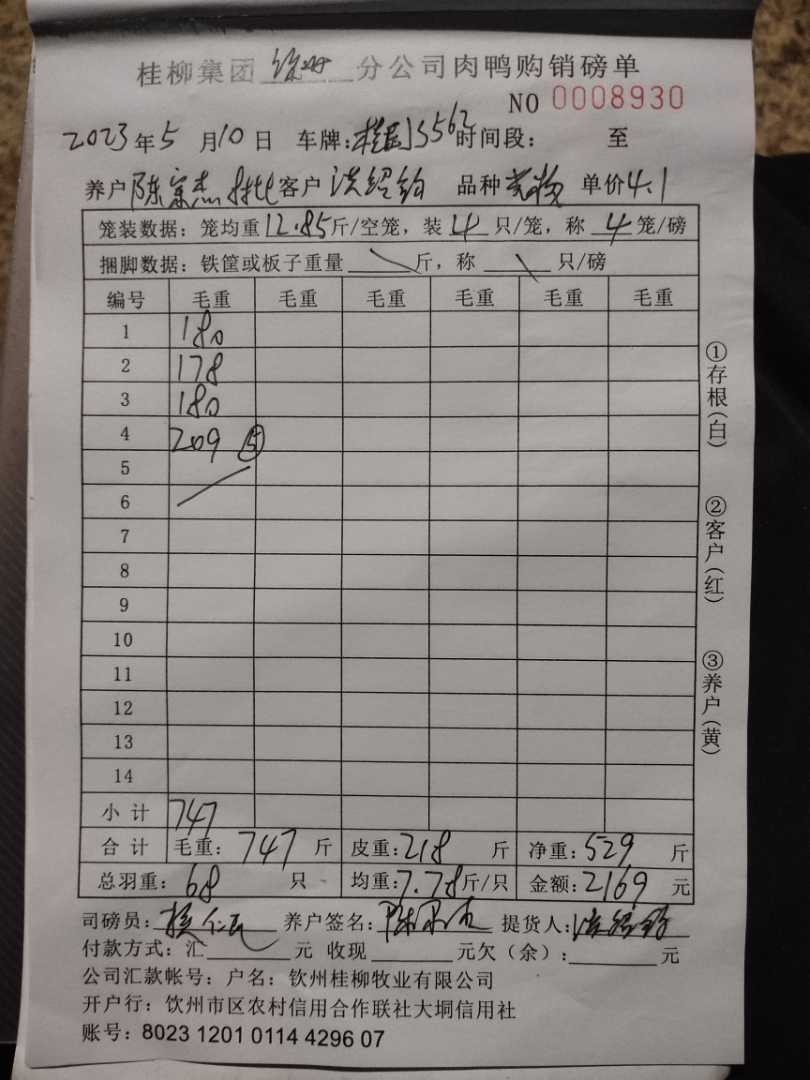 桂柳集团 钦州 分公司肉鸭购销磅单
NO 0008930
2023年5月10日 车牌: 5562 时间段: 至
养户 陈宗杰 客户 洪绍钧 品种 单价4.1
笼装数据: 笼均重12.85斤/空笼, 装4只/笼, 称4笼/磅
捆脚数据: 铁筐或板子重量 斤, 称 只/磅
编号 毛重 毛重 毛重 毛重 毛重 毛重
1 180
2 178
3 180
4 209 ⑤
5
6
7
8
9
10
11
12
13
14
小计 747
合计 毛重: 747 斤 皮重: 218 斤 净重: 529 斤
总羽重: 68 只 均重: 7.78斤/只 金额: 2169 元
司磅员: 养户签名: 提货人:
付款方式: 汇 元 收现 元欠(余): 元
公司汇款帐号: 户名: 钦州桂柳牧业有限公司
开户行: 钦州市区农村信用合作联社大垌信用社
账号: 8023 1201 0114 4296 07
①存根(白)
②客户(红)
③养户(黄)